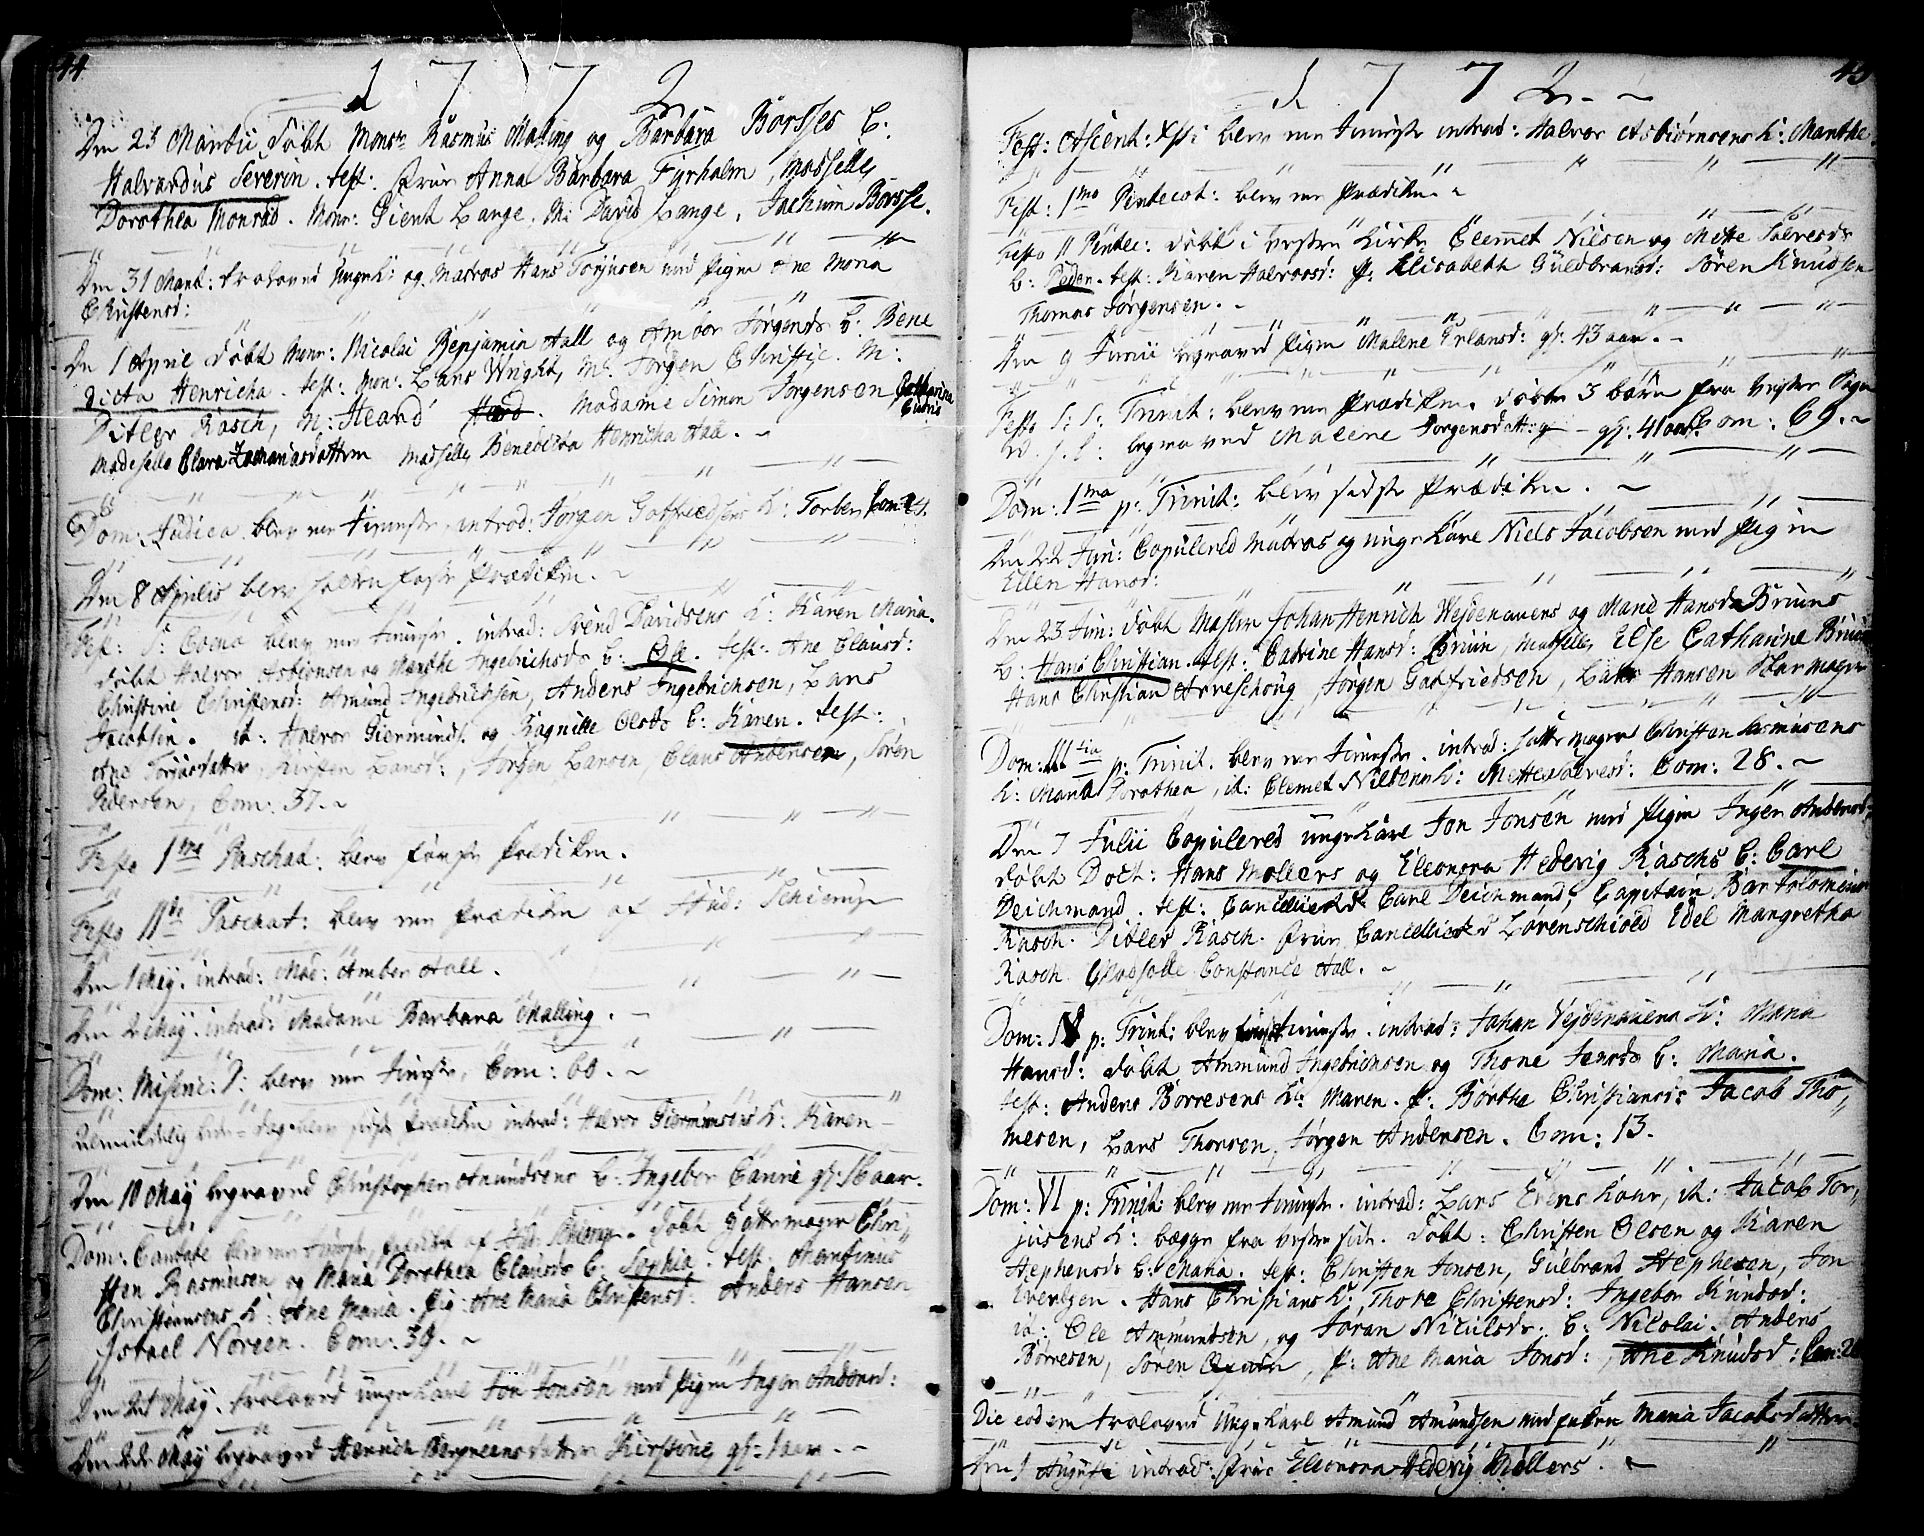 44
1772
Den 23 Martii døbt Monsr Rasmus Malling og Barbara Borsses B:
Halvardus Severin. test: Frue Anna Barbara Fyrholm, Madselle
Dorothea Monrad. Monr: Gient Lange, M: David Lange, Jachim Borsse.
Den 31 Mart: troloved Ungk: og Matros Hans Torjusen med Pigen Ane Maria
Christensd:
Den 1 April døbt Monr: Nicolai Benjamin Aall og Ambor Jørgensds b: Bene
dicta Henricha. test: Mon: Lars Wright, Mr. Jørgen Christie. M:
Ditlev Rasch, M: Heard. Madame Simon Jørgensen Catharina
Madeselle Clara Zachariasdatter Madselle Benedicta Henricha Aall.
Dom: Judica blev ren tienniste, introd: Jørgen Gotfriedsens K: Torber Com: 24.
Den 8 Aprilis blev holden faste Prædiken.
Fest: S: Coena blev ren tienniste. introd: Svend Davidsens K: Karen Maria.
døbt Halvor Asbiønsen og Marthe Ingebrichsds b: Ole. test: Ane Clausd:
Christine Christensd: Amund Ingebrichsen, Anders Ingebrichsen, Lars
Jacobsen. it: Halvor Giermunds. og Ragnille Olsds b: Karen. test:
Ane Torjusdatter, Kirsten Larsd:, Jørgen Larsen, Claus Andersen, Søren
Pedersen, Com: 37.
Festo 1mo Paschat: blev første Prædiken.
Festo IIdo Paschat: blev ren Prædiken af Stud: Schierup
Den 1 May. introd: Mad: Ambor Aall.
Den 2 May. introd: Madame Barbara Malling.
Dom: Miseric: D: blev ren tienniste, Com: 60.
Almindelig bede-dag blev sidste Prædiken introd: Halvor Giermunsens K: Karen
Den 10 May begraved Christopher Amundsens b: Ingebor Canrie gl: aar.
Dom: Cantate blev ren tienniste, Prædiken af Stud: Schierup. døbt Hattemager Chri,,
sten Rasmusen og Maria Dorothea Clausds b: Sophia. test: Martinus
Christiansens K: Ane Maria. Pig: Ane Maria Christensd: Anders Hansen
Israel Noreen. Com: 39.
Den 21 May. troloved unge Karl Jon Jonsen med Pigen Inger Andersd:
Den 22 May begraved Henrich datter Kirstine gl: 1 aar.
45
1772.
Fest: Ascent: Xsti blev ren tienniste introd: Halvor Asbiørnsens K: Marthe.
Fest: 1mo Pentecot: blev ren Prædiken.
Festo II Pentec: døbt i Vestre Kirke Clemet Nilsen og Mette Salvesds
b: Peder. test: Karen Halvorsd: P: Elisabeth Guldbransd: Søren Knudsen
Thomas Jørgensen.
Den 9 Junii begraved Pigen Malene Erlansd: gl: 43 aar.
Festo S:S: Trinit: blev ren Prædiken. døbte 3 børn fra Vestre Sogn
begraved Malene Jorgensdatter gl: 41 aar. Com: 69.
Dom: 1ma p: Trinit: blev sidste Prædiken.
Den 22 Jun: Copulered Matros og unge Karl Niels Jacobsen med Pigen
Ellen Hansd:
Den 23 Jun: døbt Mester Johan Henrich Weidenauens og Marie Hansds Bruuns
b: Hans Christian. test: Catrine Hansd: Bruun, Madselle Else Catharine Bruun
Hans Christian Arreschoug, Jørgen Gotfriedsen, Lars Hansen Skomager
Dom: IIItia p: Trinit. blev ren tienniste. introd: Hattemager Christen Rasmusens
K: Maria Dorothea, it: Clemet Nilsens K: Mette Salvesd: Com: 28.
Den 7 Julii Copulered unge Karl Jon Jonsen med Pigen Inger Andersd:
døbt Doct: Hans Mollers og Eleonora Hedevig Raschs b: Carl
Deichmand. test: Cancellieraad Carl Deichmand; Capitain Bartolomeus
Rasch. Ditlev Rasch. Frue Cancellieraad Lovenschiold Edel Mangretha
Rasch Madselle Constance Aall.
Dom: IV p: Trinit: blev tienniste. introd: Johan Vejdenauens K: Maria
Hansd: døbt Ammund Ingebrichsen og Thone Jensds b: Maria.
test: Anders Børresens K: Maren. P: Børthe Christiansd: Jacob Tho,,
mesen, Lars Thorsen, Jørgen Andersen. Com: 13.
Dom: VI p: Trinit: blev ren tienniste. introd: Lars Evens Kone, it: Jacob Tor,,
jusens K: begge fra Vestre side. døbt: Christen Olsen og Karen
Stephensds b: Maria. test: Christen Jonsen, Gulbrand Stephesen, Jon
Evertsen. Hans Christians K:, Thore Christensd: Ingebor Knudsd:
it: Ole Ammundsen, og Joran Niculsds: b: Nicolai. Anders
Børresen, Søren P: Ane Maria Jonsd:, Ane Knudsd: Com: 20
Die eodem troloved Unge Karl Amund Amundsen med Enken Maria Jacobsdatter
Den 1 Augusti introd: Frue Eleonora Hedevig Møllers.